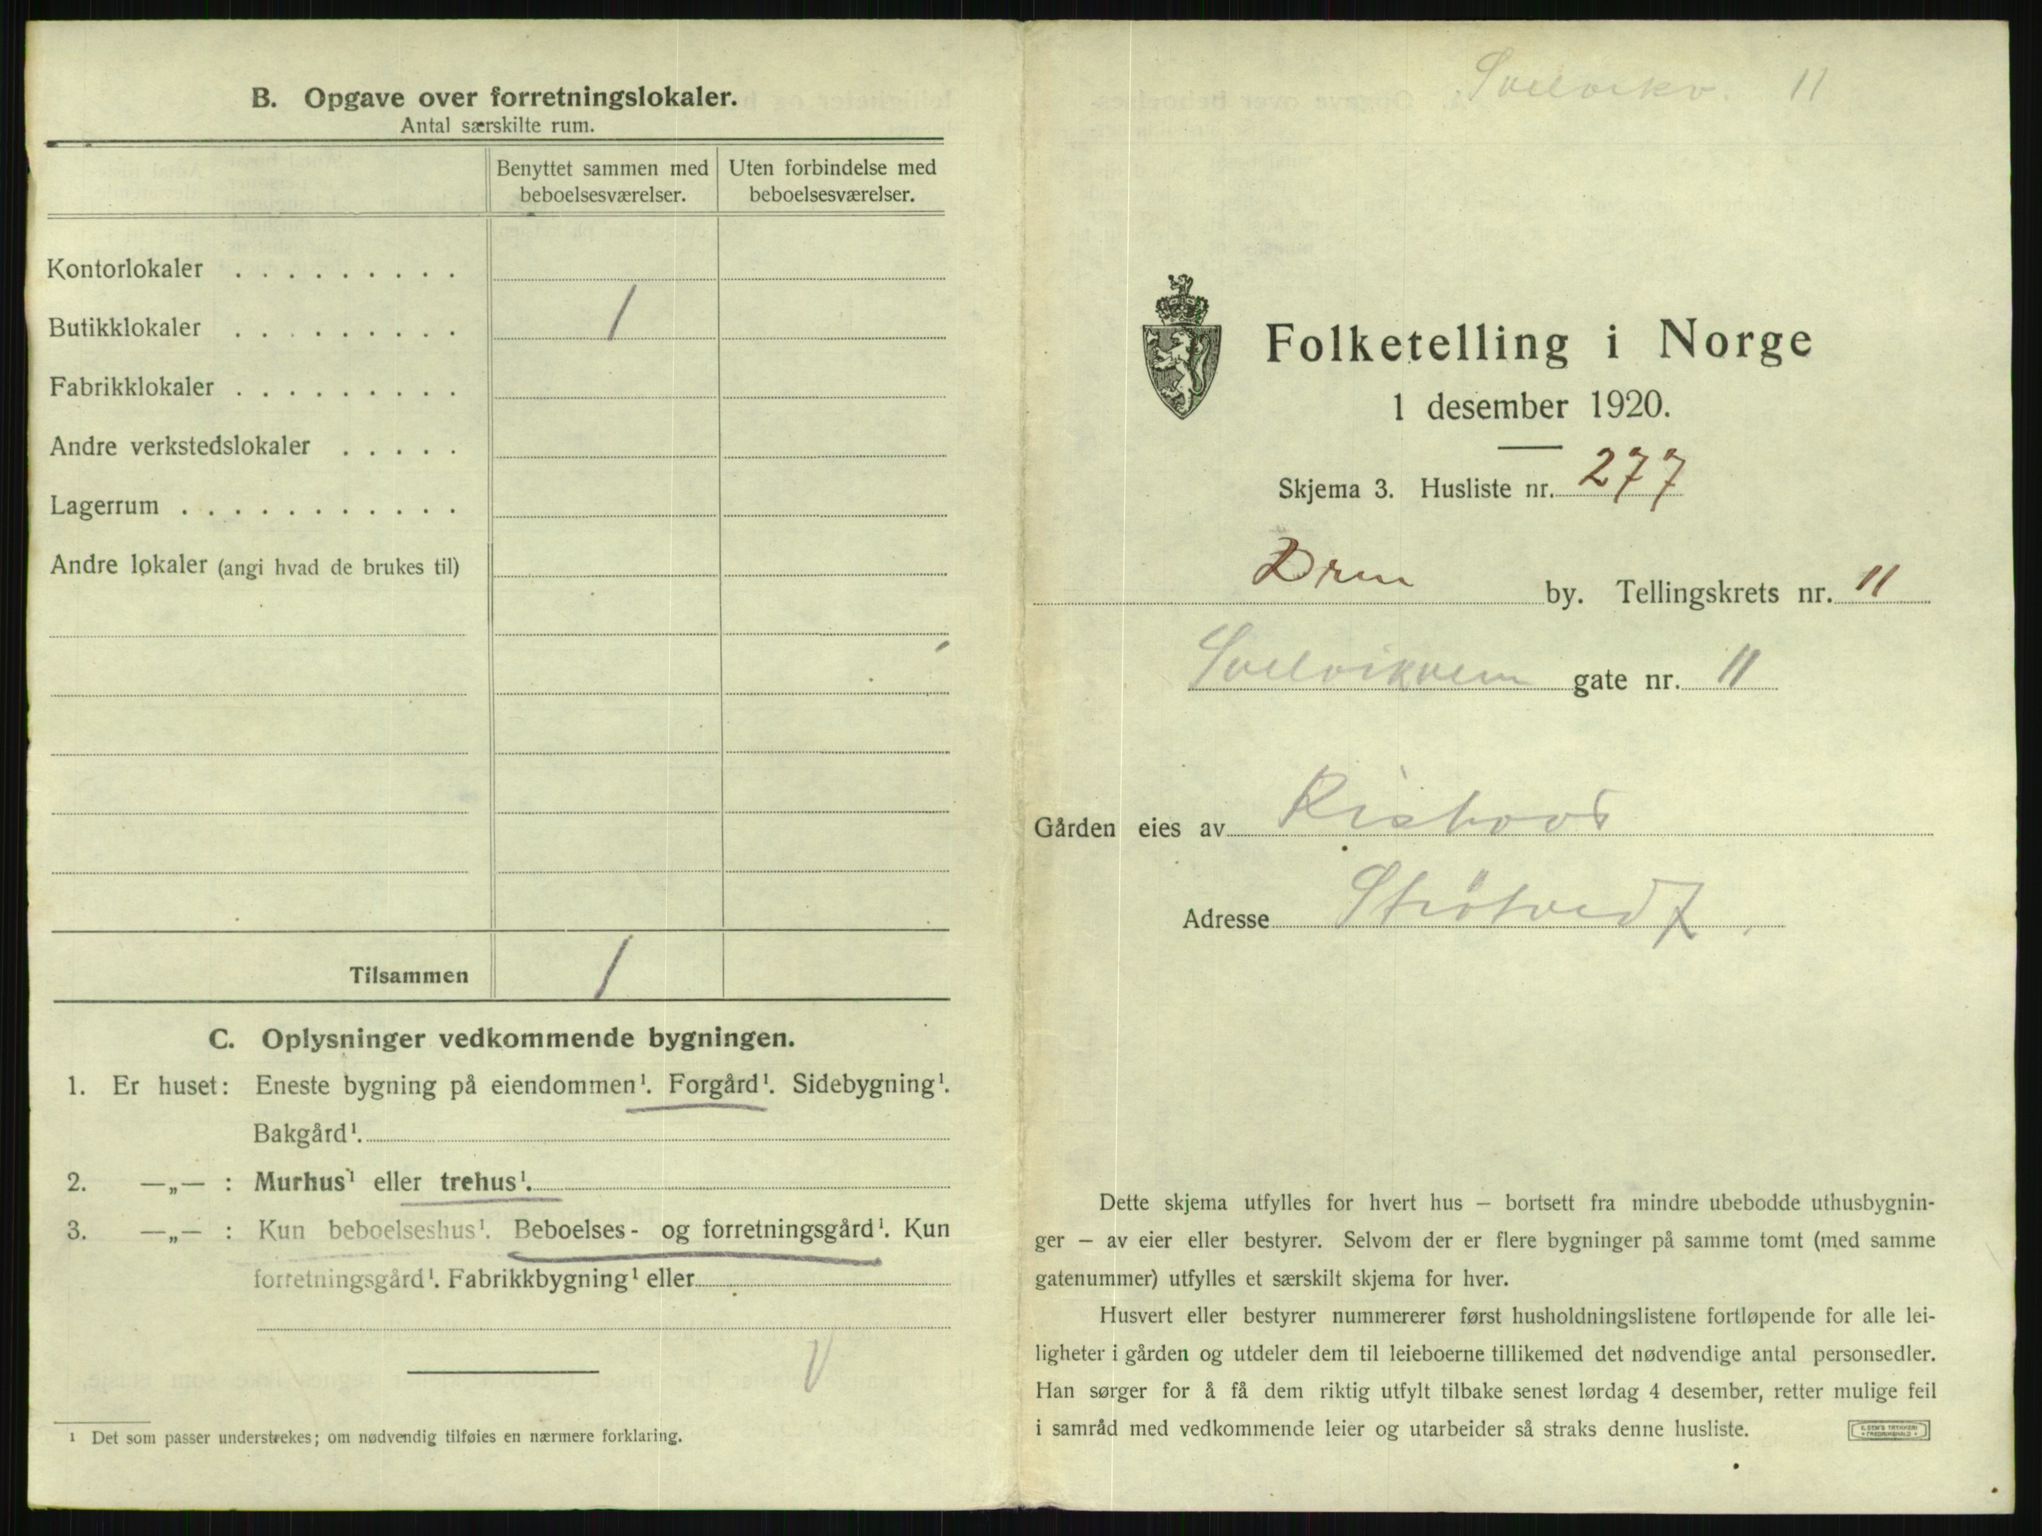 B. Opgave over forretningslokaler.
Antal særskilte rum.
Benyttet sammen med beboelsesværelser.
Uten forbindelse med beboelsesværelser.
Kontorlokaler . . . . . . . . .
Butikklokaler . . . . . . . . . 1
Fabrikklokaler . . . . . . . . .
Andre verkstedslokaler . . . . .
Lagerrum . . . . . . . . . . . .
Andre lokaler (angi hvad de brukes til)
Tilsammen 1
C. Oplysninger vedkommende bygningen.
1. Er huset: Eneste bygning på eiendommen¹. Forgård¹. Sidebygning¹.
Bakgård¹.
2. —„— : Murhus¹ eller trehus¹.
3. —„— : Kun beboelseshus¹. Beboelses- og forretningsgård¹. Kun
forretningsgård¹. Fabrikkbygning¹ eller
V
¹ Det som passer understrekes; om nødvendig tilføies en nærmere forklaring.
Svelvikv. 11
Folketelling i Norge
1 desember 1920.
Skjema 3. Husliste nr. 277
Drm by. Tellingskrets nr. 11
Svelvikveien gate nr. 11
Gården eies av
Adresse Strøtvedt
Dette skjema utfylles for hvert hus – bortsett fra mindre ubebodde uthusbygnin-
ger – av eier eller bestyrer. Selvom der er flere bygninger på samme tomt (med samme
gatenummer) utfylles et særskilt skjema for hver.
Husvert eller bestyrer nummererer først husholdningslistene fortløpende for alle lei-
ligheter i gården og utdeler dem til leieboerne tillikemed det nødvendige antal personsedler.
Han sørger for å få dem riktig utfylt tilbake senest lørdag 4 desember, retter mulige feil
i samråd med vedkommende leier og utarbeider så straks denne husliste.